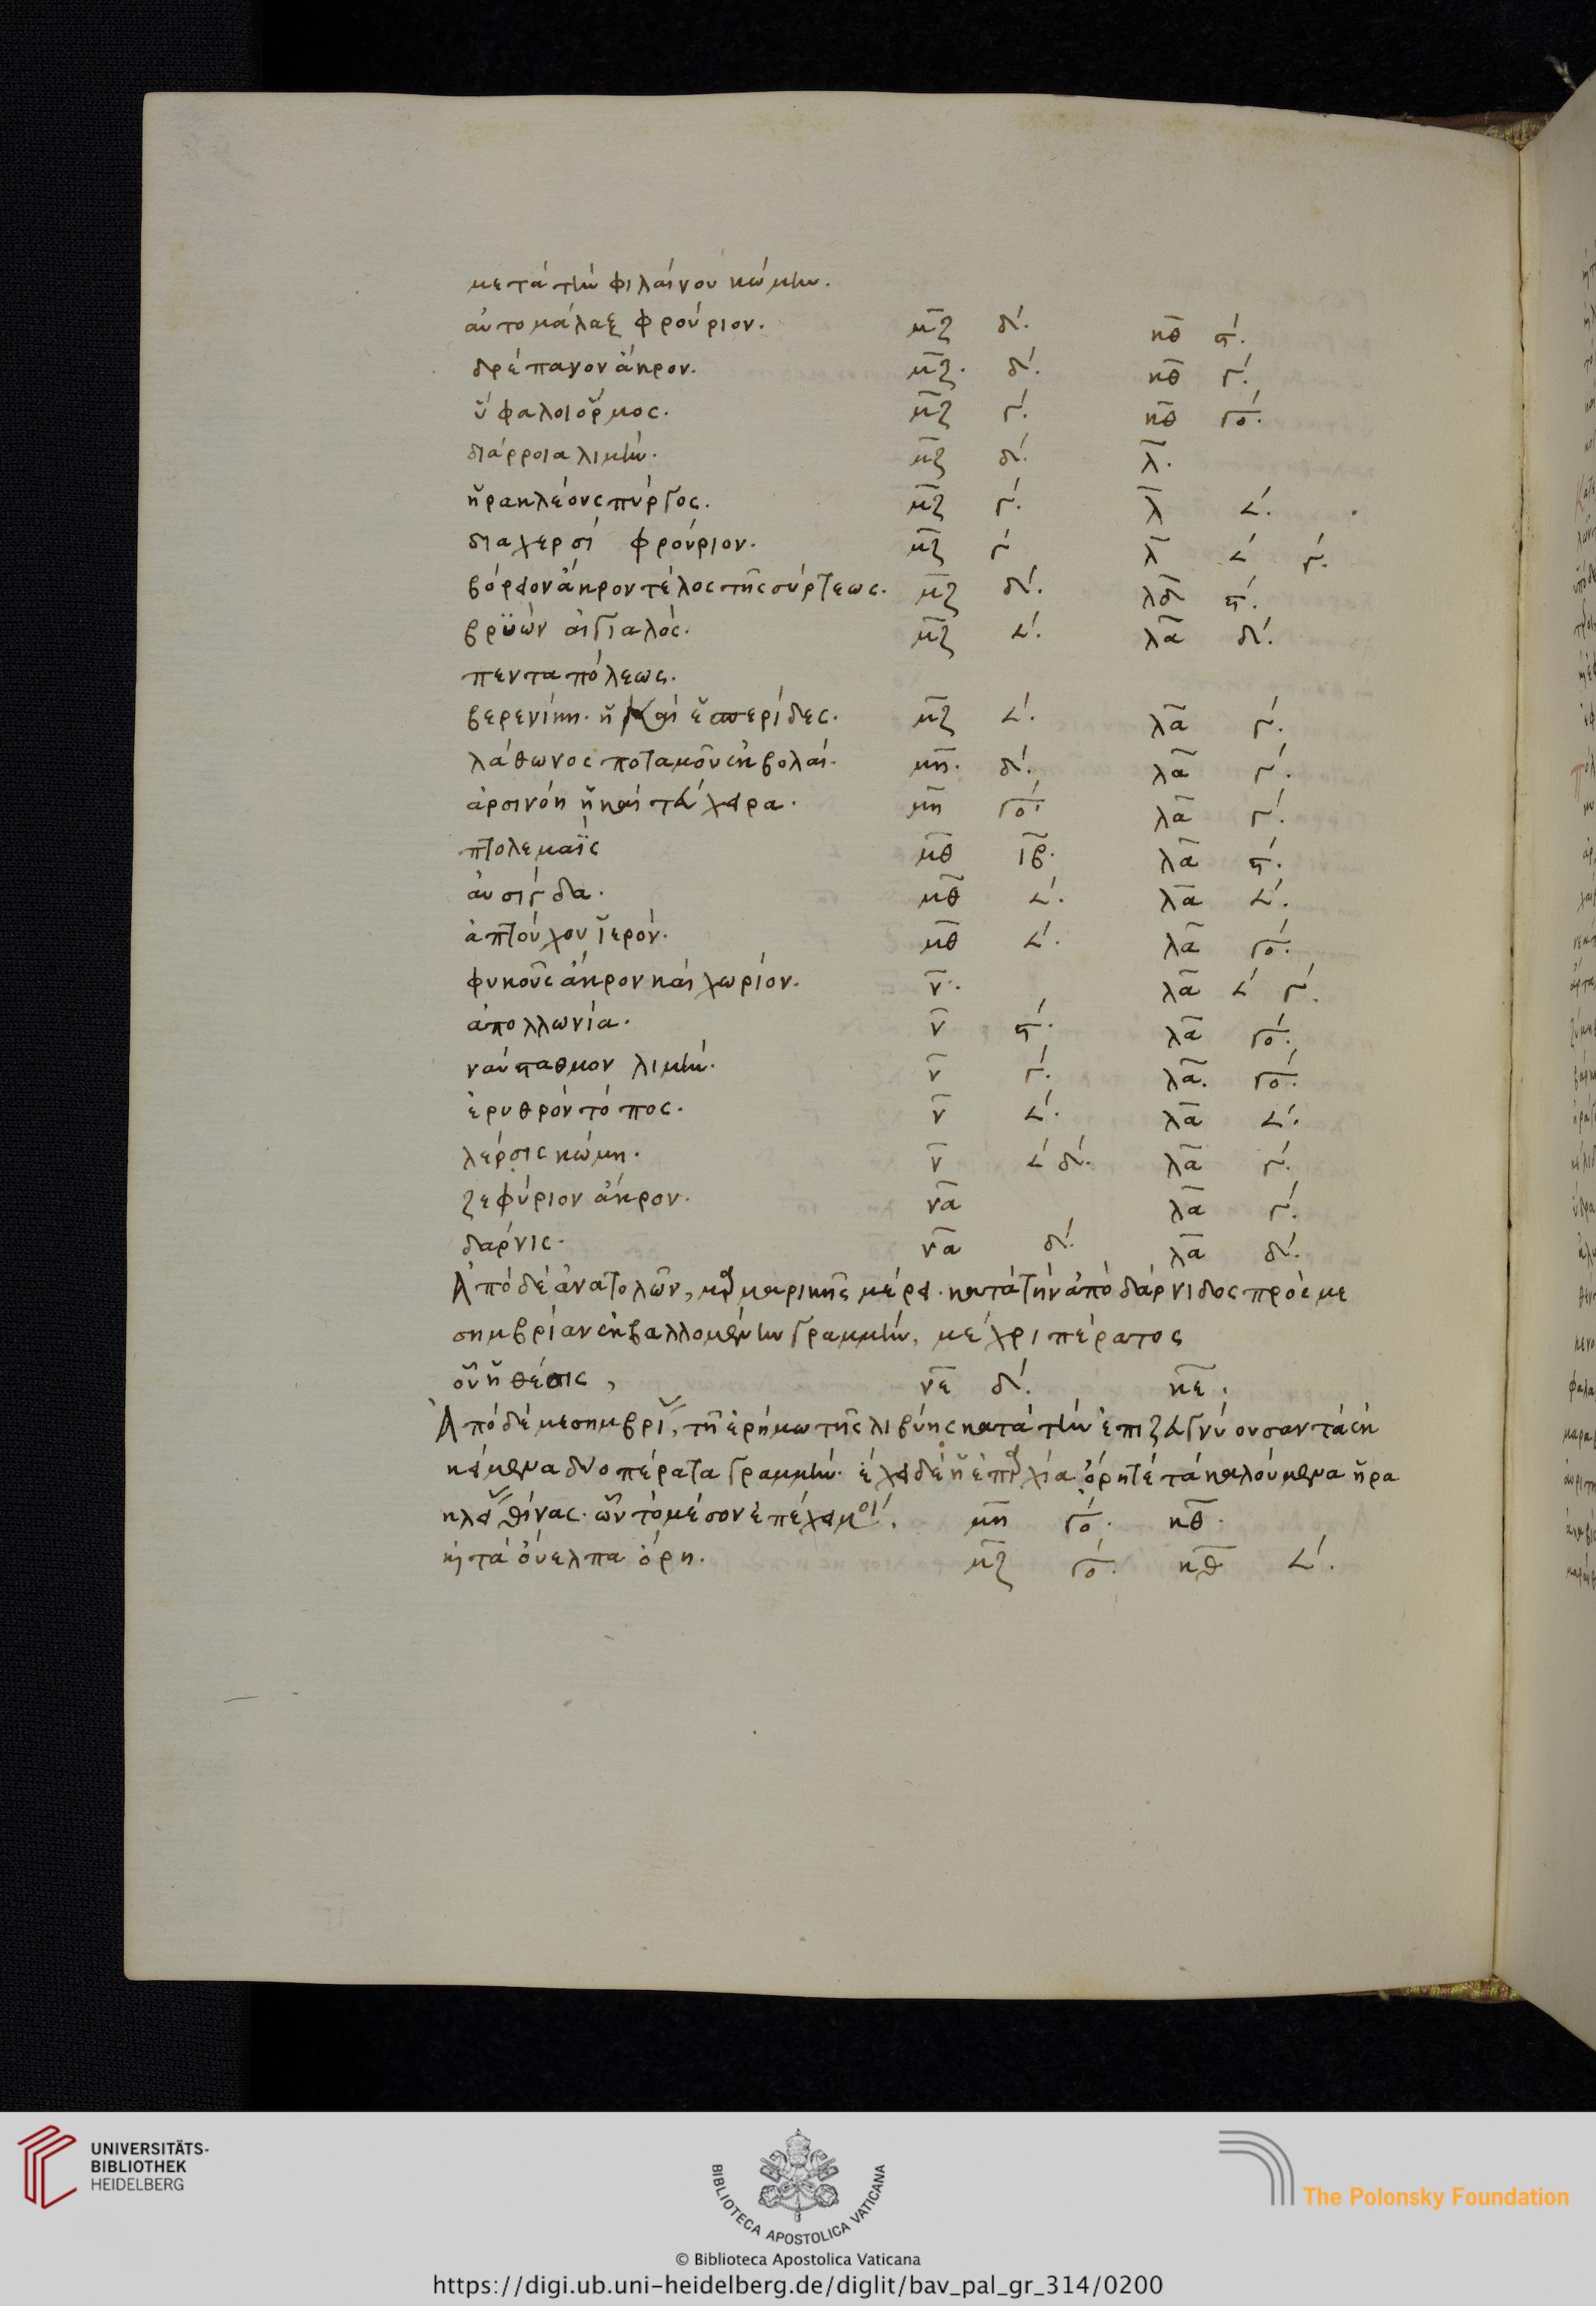 μετὰ τὴν φιλαίνου κώμην.
αὐτομάλαξ φρούριον. μ̅ζ̅ δ´. κ̅θ̅ ϛ´.
δρέπανον ἄκρον. μ̅ζ̅. δ´. κ̅θ̅ γ´.
ὕφαλοι ὅρμος. μ̅ζ̅ γ´. κ̅θ̅ γο´.
διάρροια λιμήν. μ̅ζ̅ δ´. λ̅.
ἡρακλέους πύργος. μ̅ζ̅ γ´. λ̅ ∠´.
διαχερσί φρούριον. μ̅ζ̅ γ´ λ̅ ∠´ γ´.
βόρειον ἄκρον τέλος τῆς σύρτεως. μ̅ζ̅ δ´. ϛ´.
βρϋὼν αἰγιαλός. μ̅ζ̅ ∠´. λ̅α̅ δ´.
πενταπόλεως.
βερενίκη. ἡ καὶ ἑσπερίδες. μ̅ζ̅ ∠´. λ̅α̅ γ´.
λάθωνος ποταμοῦ ἐκβολαί. μ̅η̅. δ´. λ̅α̅ γ´.
ἀρσινόη ἡ καὶ τεύχειρα. μ̅η̅ γο´. λ̅α̅ γ´.
πτολεμαῒς μ̅θ̅ ι̅β̅. λ̅α̅ ϛ´.
αὐσίγδα. μ̅θ̅ ∠´. λ̅α̅ ∠´.
ἀπτούχου ἱερόν. μ̅θ̅ ∠´. λ̅α̅ γο´.
φυκοῦς ἄκρον καὶ χωρίον. ν̅. λ̅α̅ ∠´ γ´.
ἀπολλωνία. ν̅ ϛ´. λ̅α̅ γο´.
ναύσταθμον λιμήν. ν̅ γ´. λ̅α̅. γο´.
ἐρυθρὸν τόπος. ν̅ ∠´. λ̅α̅ ∠´.
χέρσις κώμη. ν̅ ∠´ δ´. λ̅α̅ γ´.
ζεφύριον ἄκρον. ν̅α̅ λ̅α̅ γ´.
δάρνις. ν̅α̅ δ´. λ̅α̅ δ´.
Ἀπὸ δὲ ἀνατολῶν, μαρμαρικῆς μέρει. κατὰ τὴν ἀπὸ δάρνιδος πρὸς με
σημβρίαν ἐκβαλλομένην γραμμήν, μέχρι πέρατος
οὗ ἡ θέσις, ν̅ε̅ δ´. κ̅ε̅.
Ἀπὸ δὲ μεσημβρίας, τῆ ἐρήμω τῆς λιβύης κατὰ τὴν ἐπιζευγνύουσαν τὰ ἐκ
κείμενα δύο πέρατα γραμμήν. ἔχει δὲ ἡ ἐπαρχία ὄρη τέ τὰ καλούμενα ἡρα
κλείους θίνας. ὧν τὸ μέσον ἐπέχει μοί. μ̅η̅ γο´. κ̅θ̅.
καὶ τὰ ὀύελπα ὄρη. μ̅ζ̅ γο´. κ̅θ̅ ∠´.
UNIVERSITÄTS-
BIBLIOTHEK
HEIDELBERG
BIBLIOTECA APOSTOLICA VATICANA
The Polonsky Foundation
© Biblioteca Apostolica Vaticana
https://digi.ub.uni-heidelberg.de/diglit/bav_pal_gr_314/0200